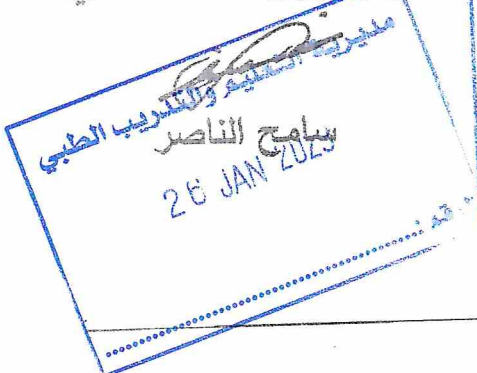 مديرية التعليم والتدريب الطبي
سامح الناصر
26 JAN 2025